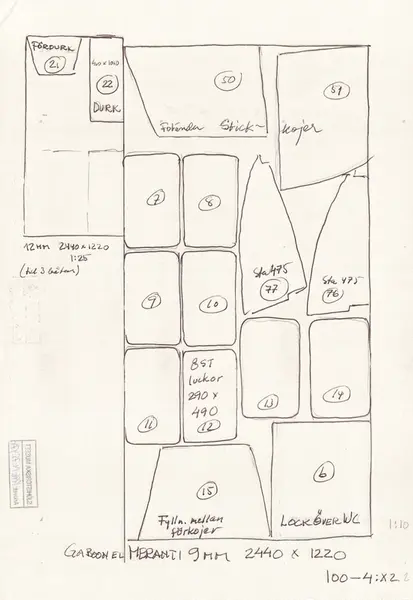 FÖRDURK
21
400x1060
22
DURK
50
51
Fotända Stick-
kojer
7
8
12MM 2440x1220
1:25
(till 3 båtar)
Sta 475
77
Sta 475
76
9
10
8ST
luckor
290 x
490
12
11
13
14
15
Fylln. mellan
förkojer
6
LOCK ÖVER WC
1:10
GABOON EL MERANTI 9MM 2440 x 1220
100-4:X2